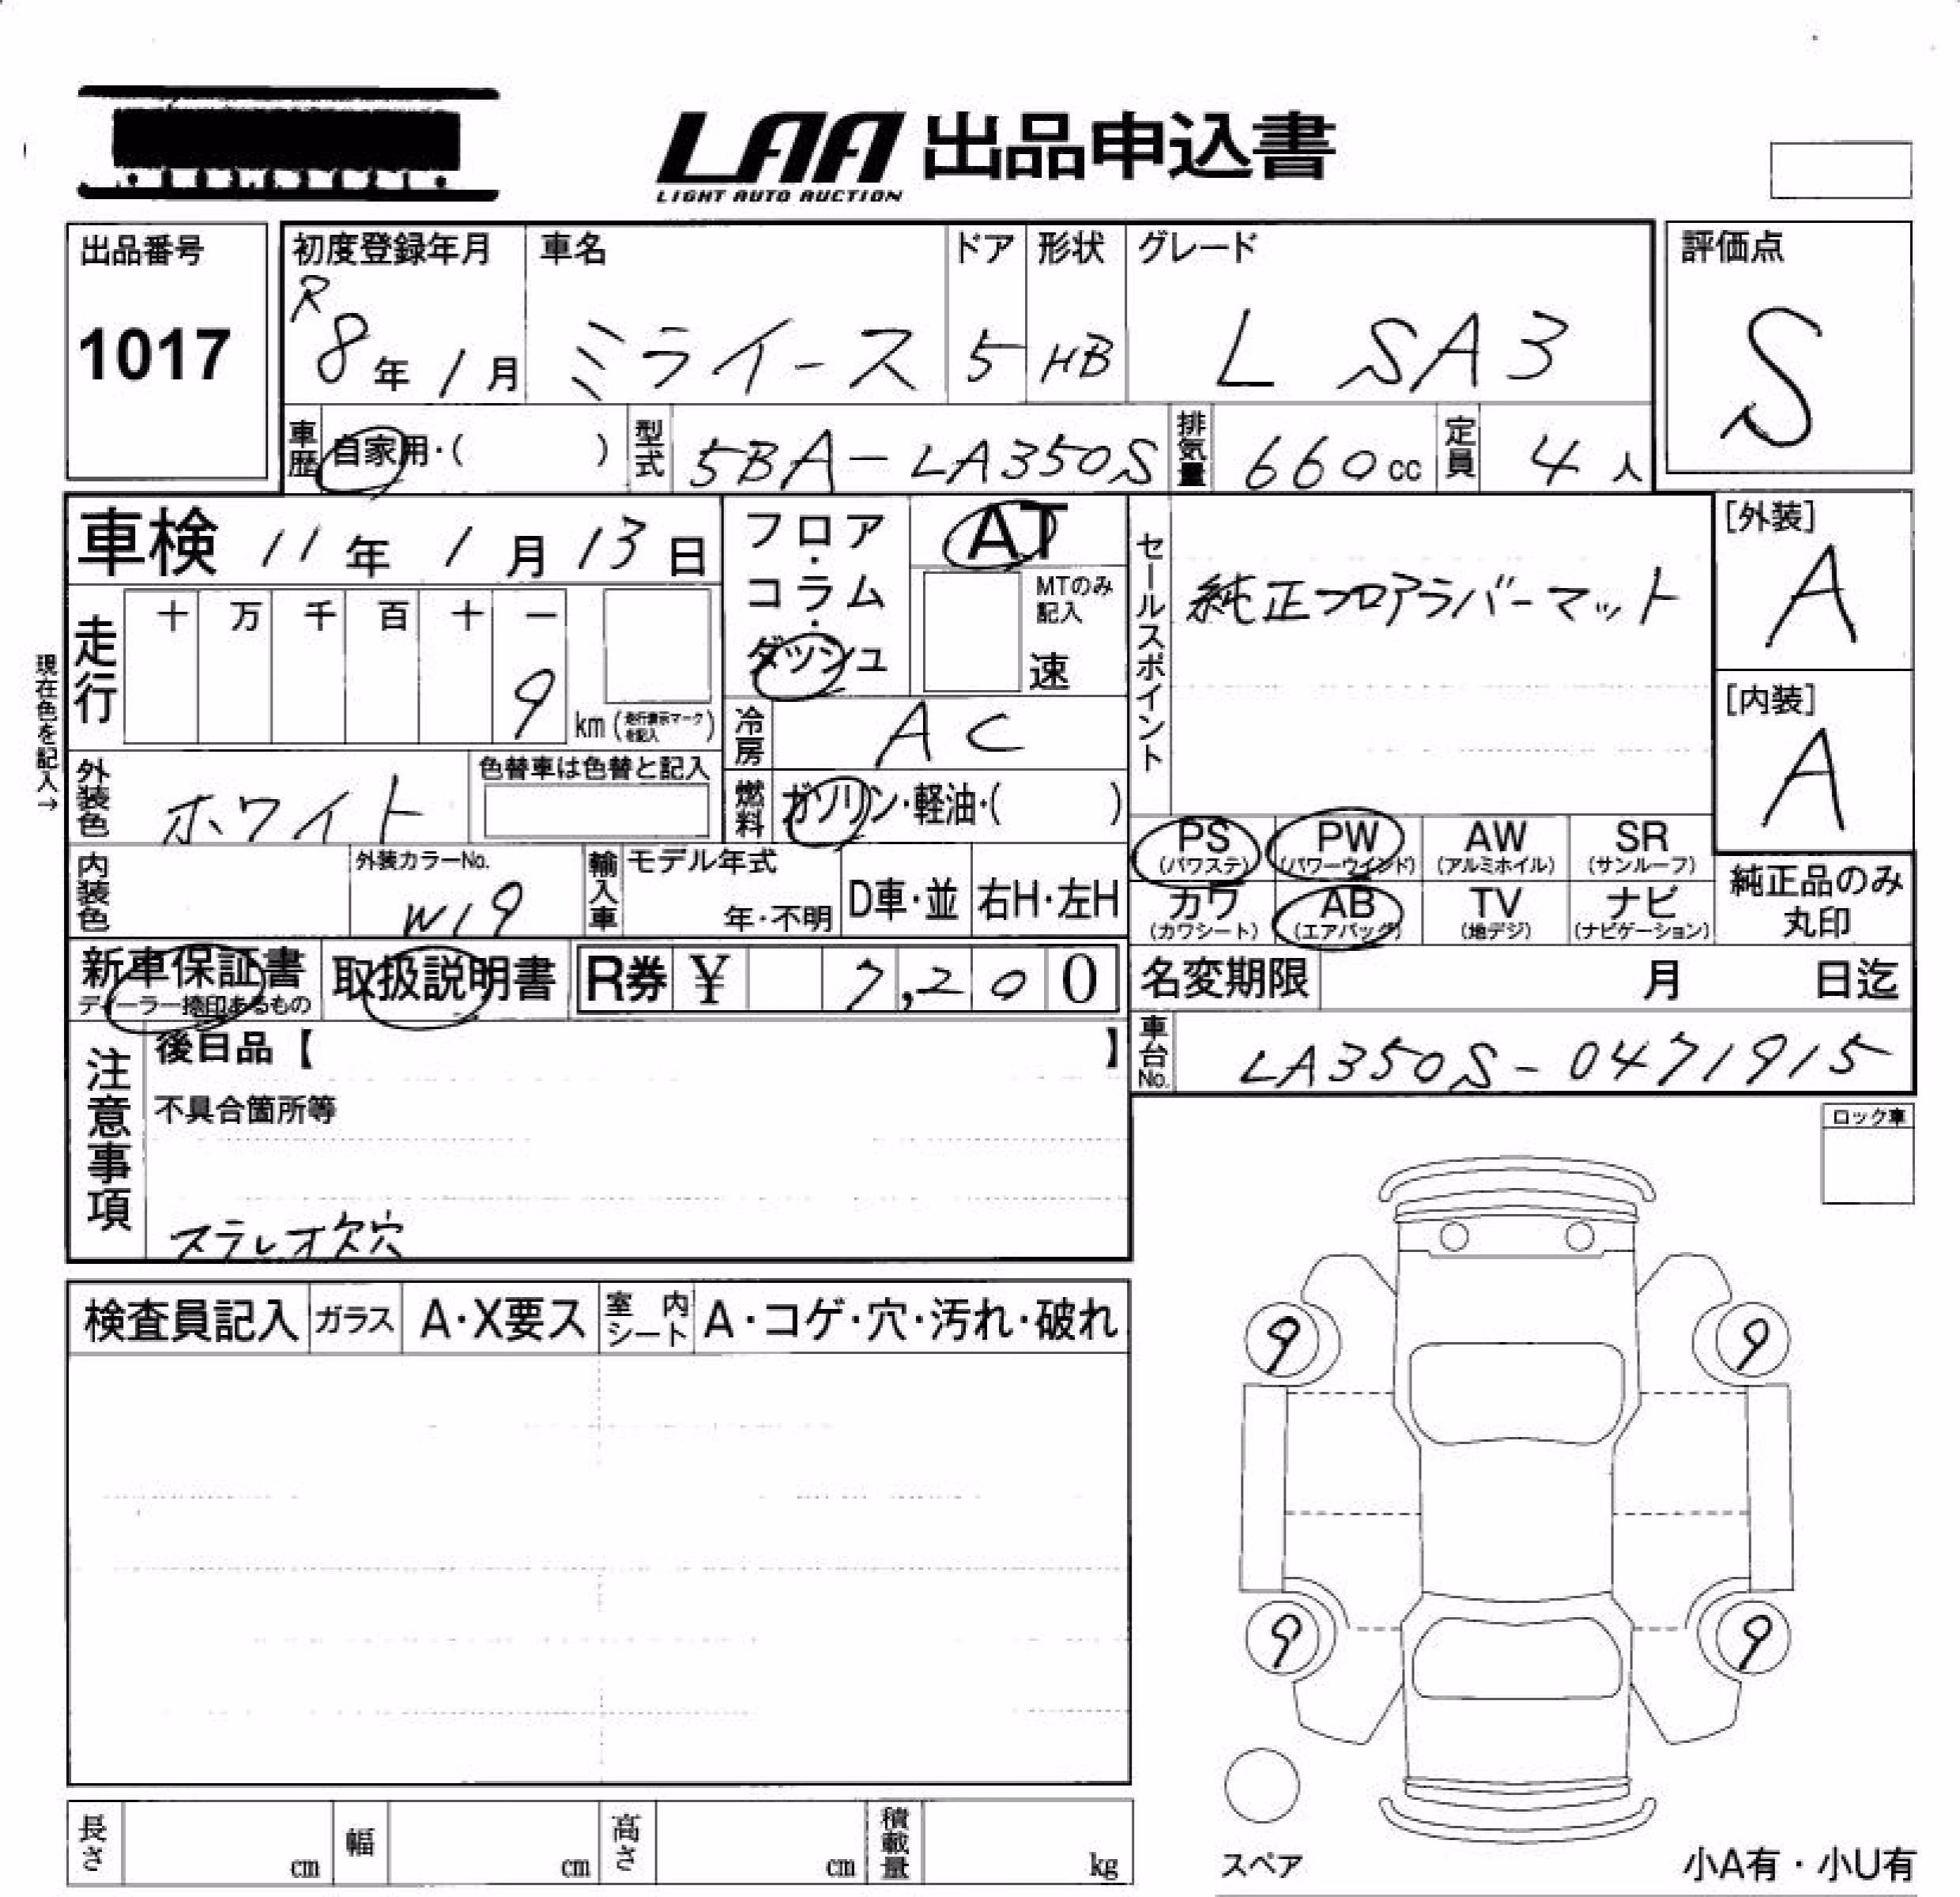 LAA 出品申込書
LIGHT AUTO AUCTION
出品番号
1017
初度登録年月
R 8年 1月
車名
ミライース
ドア
5
形状
HB
グレード
L SA3
評価点
S
車歴 自家用・( )
型式 5BA-LA350S
排気量 660cc
定員 4人
車検 11年 1月 13日
フロア・コラム・ダッシュ
AT
MTのみ記入
速
セールスポイント
純正フロアラバーマット
[外装]
A
[内装]
A
現在色を記入→
走行 十 万 千 百 十 一
9 km (走行表示マークを記入)
冷房 AC
外装色 ホワイト
色替車は色替と記入
燃料 ガソリン・軽油・( )
PS (パワステ)
PW (パワーウインド)
AW (アルミホイル)
SR (サンルーフ)
内装色
外装カラーNo.
W19
輸入車
モデル年式
年・不明
D車・並
右H・左H
カワ (カワシート)
AB (エアバッグ)
TV (地デジ)
ナビ (ナビゲーション)
純正品のみ丸印
新車保証書
ディーラー捺印あるもの
取扱説明書
R券 ¥ 7,200
名変期限 月 日迄
注意事項
後日品【 】
不具合箇所等
ステレオ欠穴
車台No. LA350S-0471915
ロック車
検査員記入
ガラス
A・X要ス
室内シート
A・コゲ・穴・汚れ・破れ
9 9
9 9
スペア
小A有・小U有
長さ cm
幅 cm
高さ cm
積載量 kg